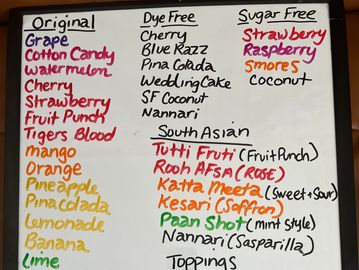 Original
Grape
Cotton Candy
Watermelon
Cherry
Strawberry
Fruit Punch
Tigers Blood
mango
Orange
Pineapple
Pina colada
Lemonade
Banana
Lime
Dye Free
Cherry
Blue Razz
Pina Colada
Wedding Cake
SF Coconut
Nannari
Sugar Free
Strawberry
Raspberry
Smores
Coconut
South Asian
Tutti Fruti (Fruit Punch)
Rooh AFSA (ROSE)
Katta Meeta (Sweet + Sour)
Kesari (Saffron)
Paan Shot (mint Style)
Nannari (Sasparilla)
Toppings